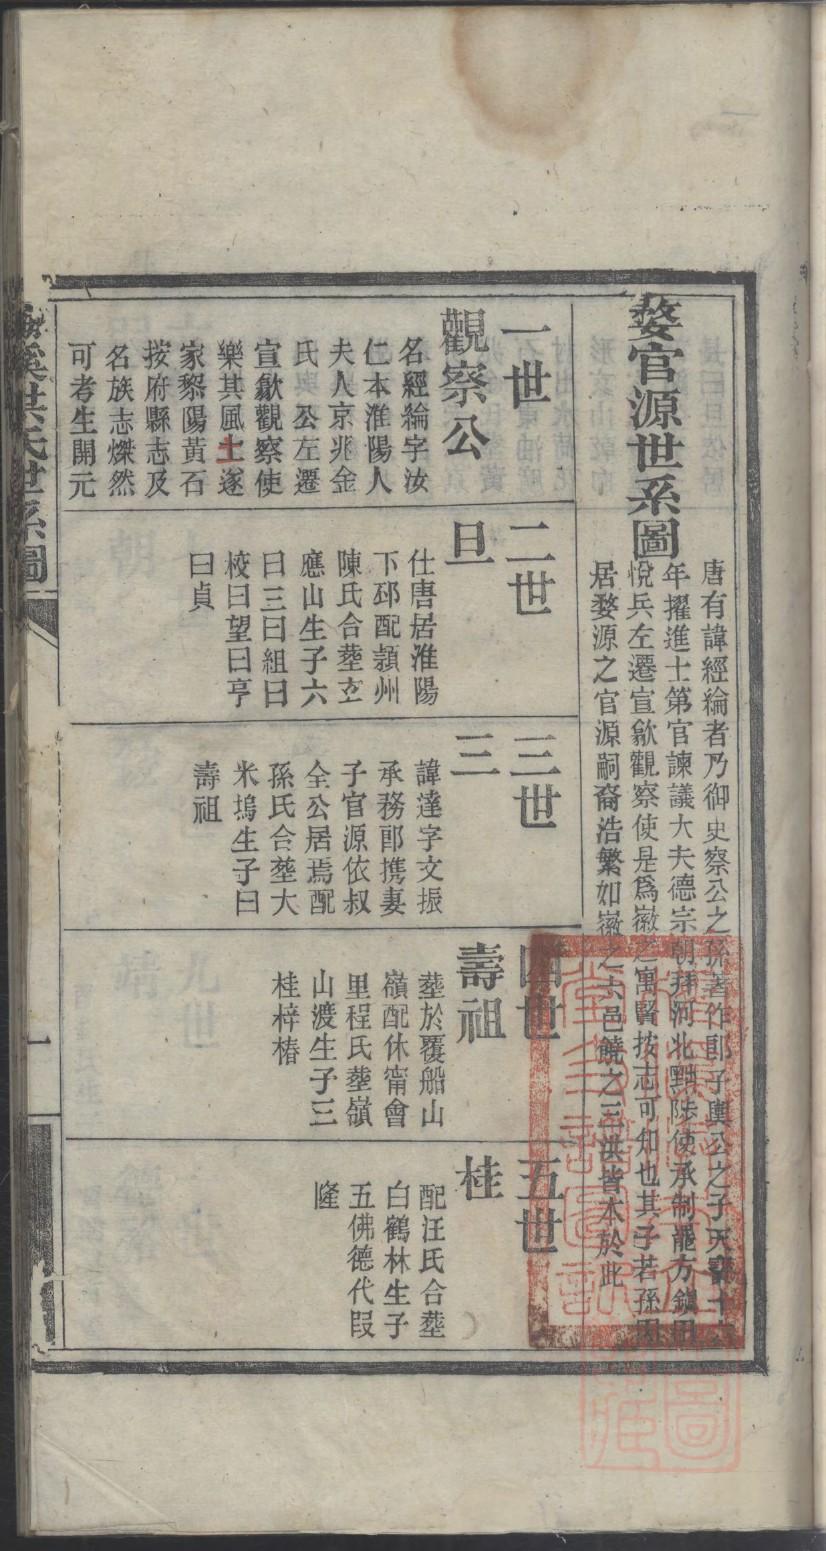 婺官源世系圖
唐有諱經綸者乃御史察公之孫著作郎子輿公之子天寶十六
年擢進士第官諫議大夫德宗朝拜河北黜陟使承制罷方鎮田
悅兵左遷宣歙觀察使是爲徽之寓賢按志可知也其子若孫因
居婺源之官源嗣裔浩繁如徽之六邑饒之三洪皆本於此
一世
觀察公
名經綸字汝
仁本淮陽人
夫人京兆金
氏公左遷
宣歙觀察使
樂其風土遂
家黎陽黃石
按府縣志及
名族志燦然
可考生開元
二世
旦
仕唐居淮陽
下邳配潁州
陳氏合塟玄
應山生子六
曰三曰組曰
校曰望曰亨
曰貞
三世
三
諱達字文振
承務郎携妻
子官源依叔
全公居焉配
孫氏合塟大
米塢生子曰
壽祖
四世
壽祖
塟於覆船山
嶺配休甯會
里程氏塟嶺
山渡生子三
桂梓椿
五世
桂
配汪氏合塟
白鶴林生子
五佛德代叚
隆
溪洪氏世系圖
一